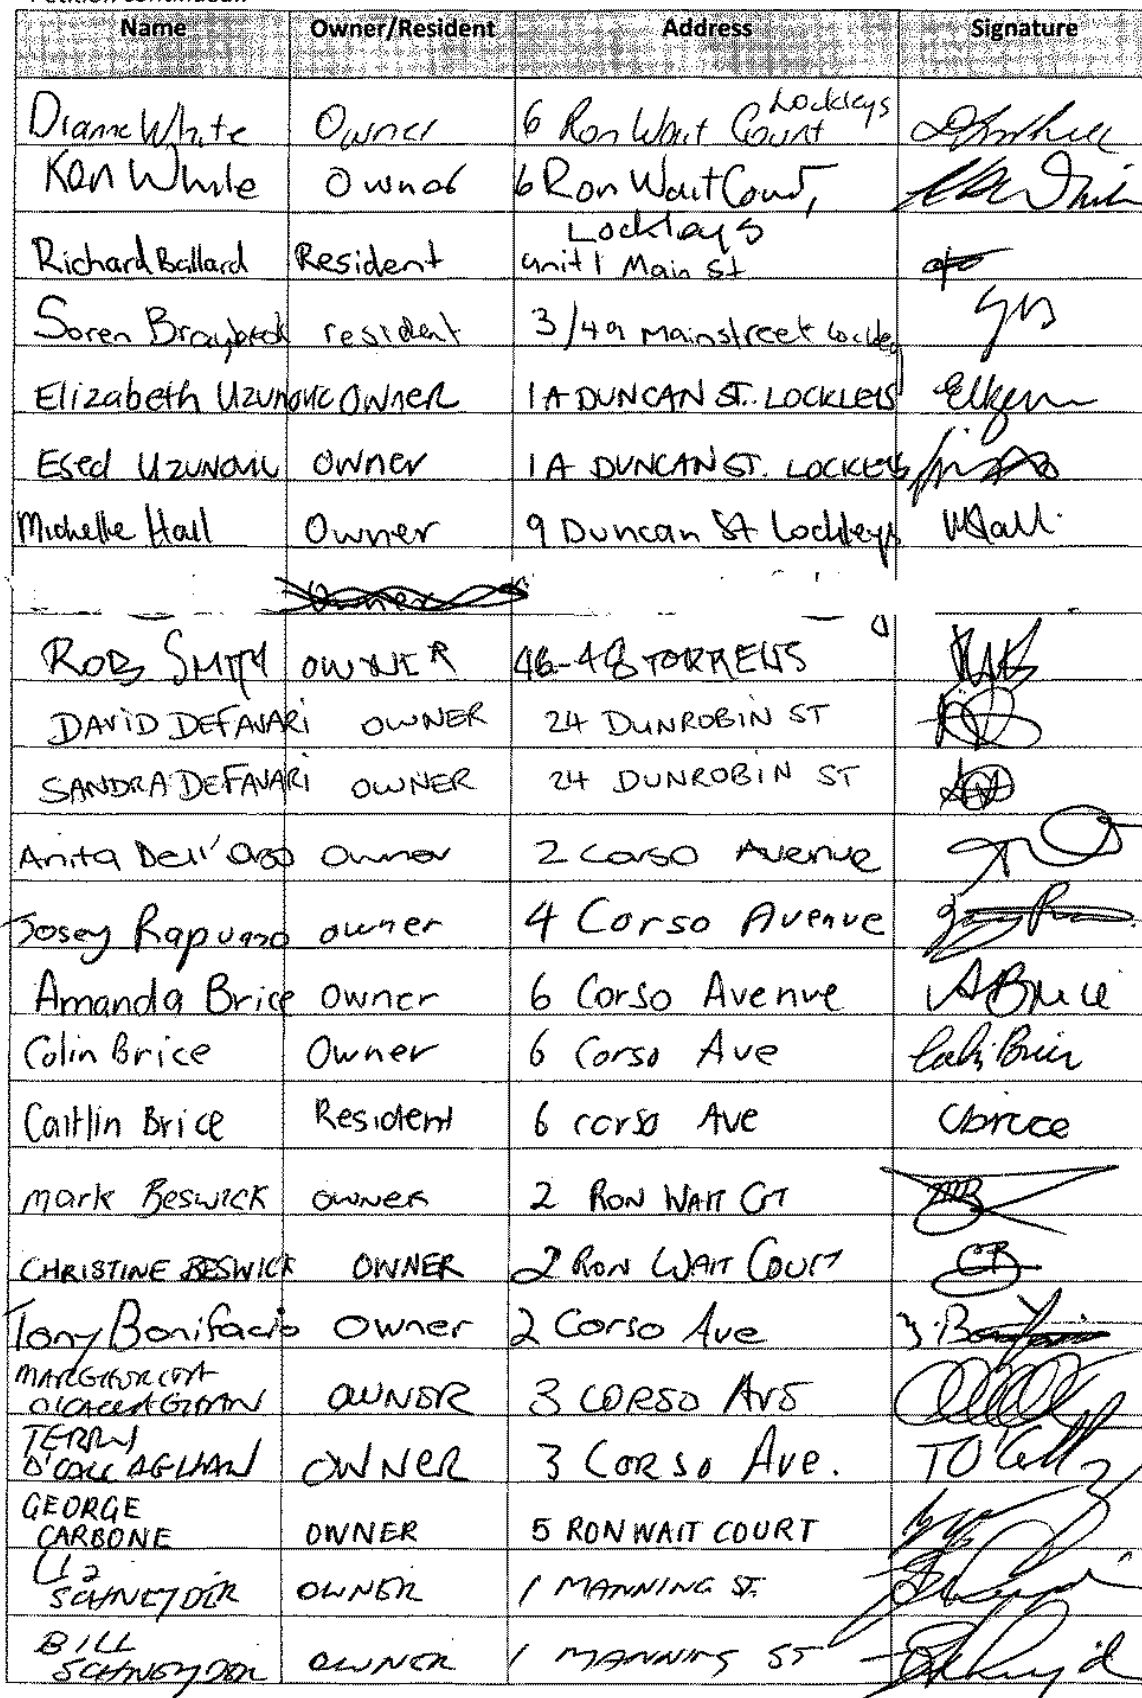 Petition continued..
Name Owner/Resident Address Signature
Dianne White Owner 6 Ron Wait Court Lockleys
Ken White Owner 6 Ron Wait Court, Lockleys
Richard Ballard Resident unit 1 Main St
Soren Braybrook resident 3/49 Mainstreet Lockley
Elizabeth Uzunovic OWNER 1A DUNCAN ST. LOCKLEYS
Esed UZUNOVIC OWNER 1A DUNCAN ST. LOCKLEYS
Michelle Hall Owner 9 Duncan St Lockleys MHall.
Owner
ROB SMITH OWNER 46-48 TORRENS
DAVID DEFAVARI OWNER 24 DUNROBIN ST
SANDRA DEFAVARI OWNER 24 DUNROBIN ST
Anita Dell'Oso Owner 2 Corso Avenue
Josey Rapuano owner 4 Corso Avenue
Amanda Brice Owner 6 Corso Avenue ABrice
Colin Brice Owner 6 Corso Ave Colin Brice
Caitlin Brice Resident 6 corso Ave Cbrice
Mark Beswick OWNER 2 RON WAIT CRT
CHRISTINE BESWICK OWNER 2 RON WAIT COURT CB
Tony Bonifacio Owner 2 Corso Ave
O'CALLAGHAN OWNER 3 CORSO AVE
TERRY O'CALLAGHAN OWNER 3 CORSO AVE. TO'Call
GEORGE
CARBONE OWNER 5 RON WAIT COURT
LIZ
SCHNEYDER OWNER 1 MANNING ST.
BILL
SCHNEYDER OWNER 1 MANNING ST